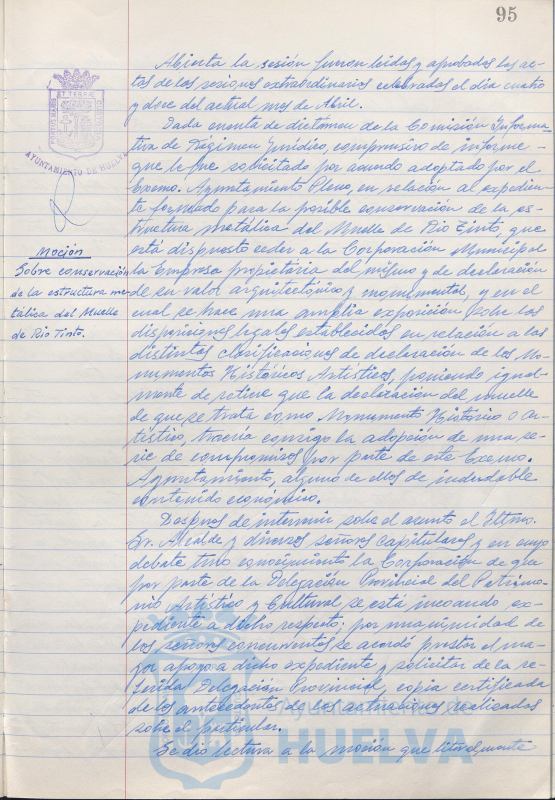 95
Abierta la sesión fueron leidas y aprobadas las ac-
tas de las sesiones extraordinarias celebradas el dia cuatro
y doce del actual mes de Abril.
Dada cuenta de dictamen de la Comisión Informa-
tiva de Régimen Jurídico, comprensivo de informe
que le fue solicitado por acuerdo adoptado por el
Excmo. Ayuntamiento Pleno, en relación al expedien-
te formado para la posible conservación de la es-
tructura metálica del Muelle de Rio Tinto, que
está dispuesto ceder a la Corporación Municipal
la Empresa propietaria del mismo y de declaración
de su valor arquitectónico y monumental, y en el
cual se hace una amplia exposición sobre las
disposiciones legales establecidas en relación a las
distintas clasificaciones de declaración de los Mo-
numentos Históricos Artísticos, poniendo igual-
mente de relieve que la declaración del muelle
de que se trata como Monumento Histórico o Ar-
tístico, traería consigo la adopción de una se-
rie de compromisos por parte de este Excmo.
Ayuntamiento, alguno de ellos de indudable
contenido económico.
Despues de intervenir sobre el asunto el Iltmo.
Sr. Alcalde y diversos señores capitulares y en cuyo
debate tuvo conocimiento la Corporación de que
por parte de la Delegación Provincial del Patrimo-
nio Artístico y Cultural se está incoando ex-
pediente a dicho respecto; por unanimidad de
los señores concurrentes se acordó prestar el ma-
yor apoyo a dicho expediente y solicitar de la re-
ferida Delegación Provincial, copia certificada
de los antecedentes de las actuaciones realizadas
sobre el particular.
Se dió lectura a la moción que literalmente
AYUNTAMIENTO DE HUELVA
Moción
Sobre conservación
de la estructura me-
tálica del Muelle
de Rio Tinto.
HUELVA